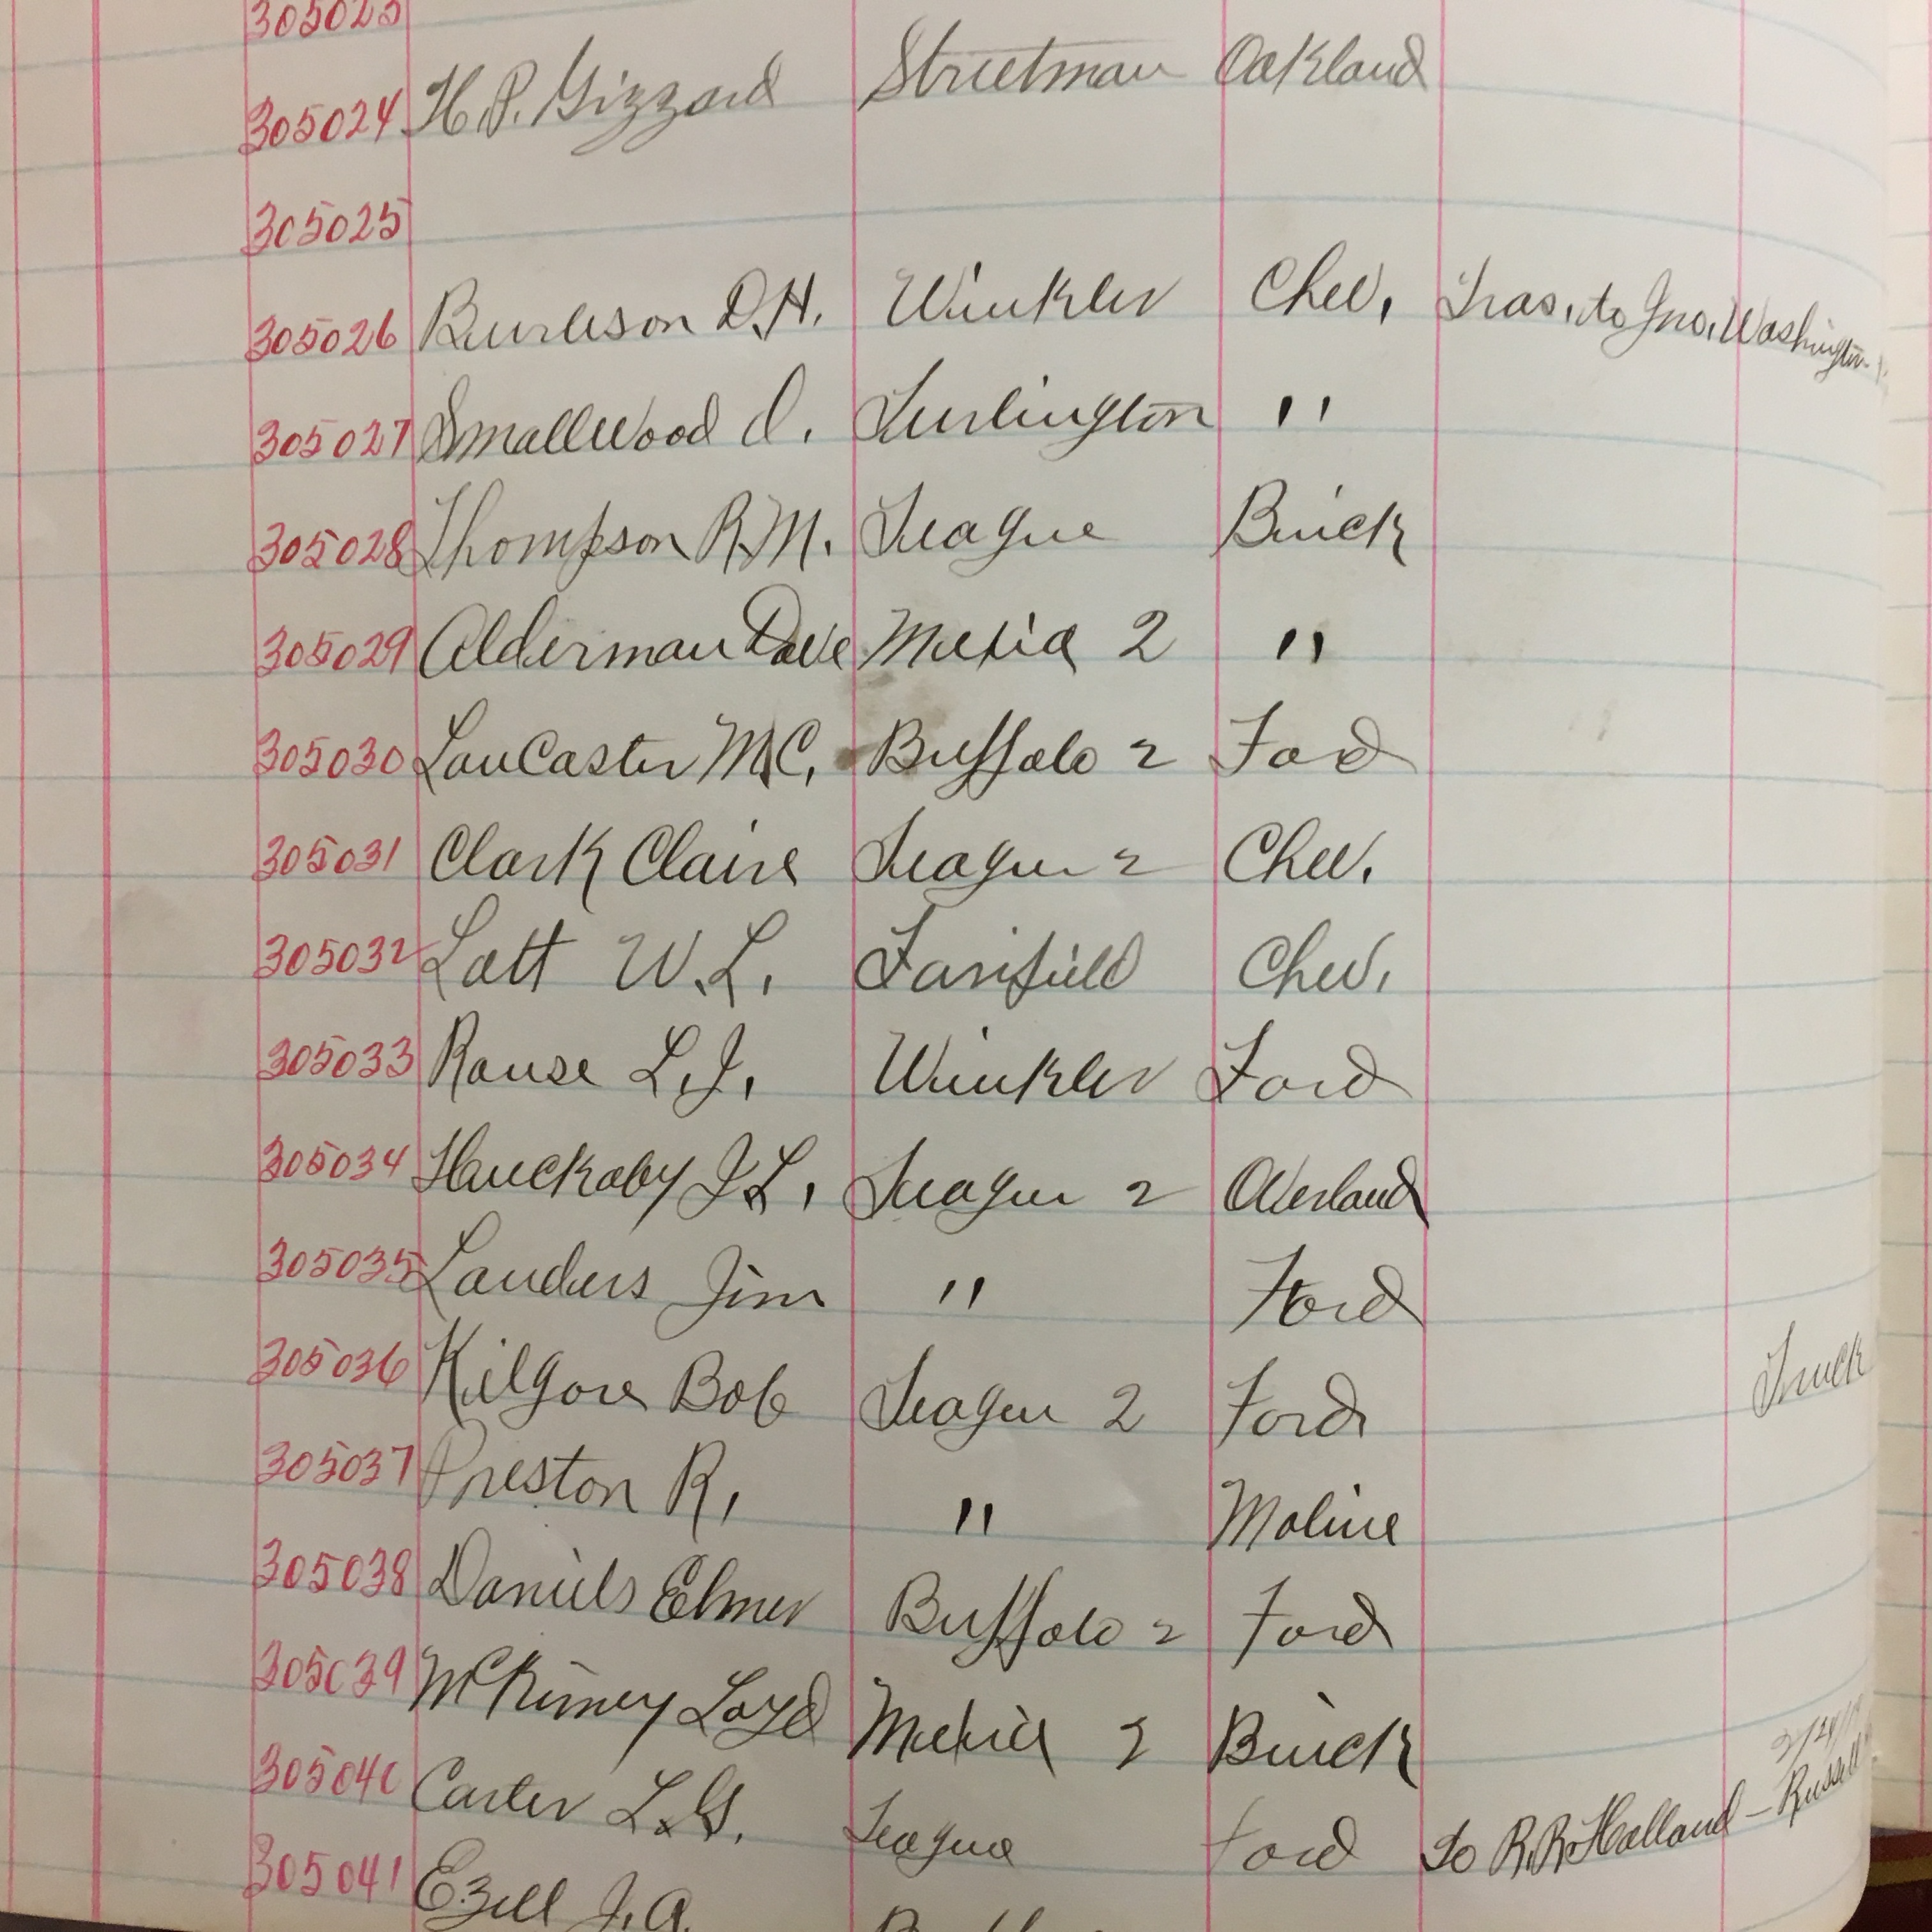 305023
305024 H.P. Gizzard Streetman Oakland
305025
305026 Burleson D.H. Winkler Chev. Tras. to Jno. Washington
305027 Smallwood O. Turlington "
305028 Thompson R.M. Teague Buick
305029 Alderman Dave Mexia 2 "
305030 Lancaster M.C. Buffalo 2 Ford
305031 Clark Claire Teague 2 Chev.
305032 Latt W.L. Fairfield Chev.
305033 Rouse L.J. Winkler Ford
305034 Huckaby J.L. Teague 2 Overland
305035 Landers Jim " Ford
305036 Kilgore Bob Teague 2 Ford Truck
305037 Preston R. " Moline
305038 Daniels Elmer Buffalo 2 Ford
305039 McKinney Loyd Mexia 2 Buick
305040 Carter L.G. Teague Ford to R.R. Holland - Russell
305041 Ezell J.A.